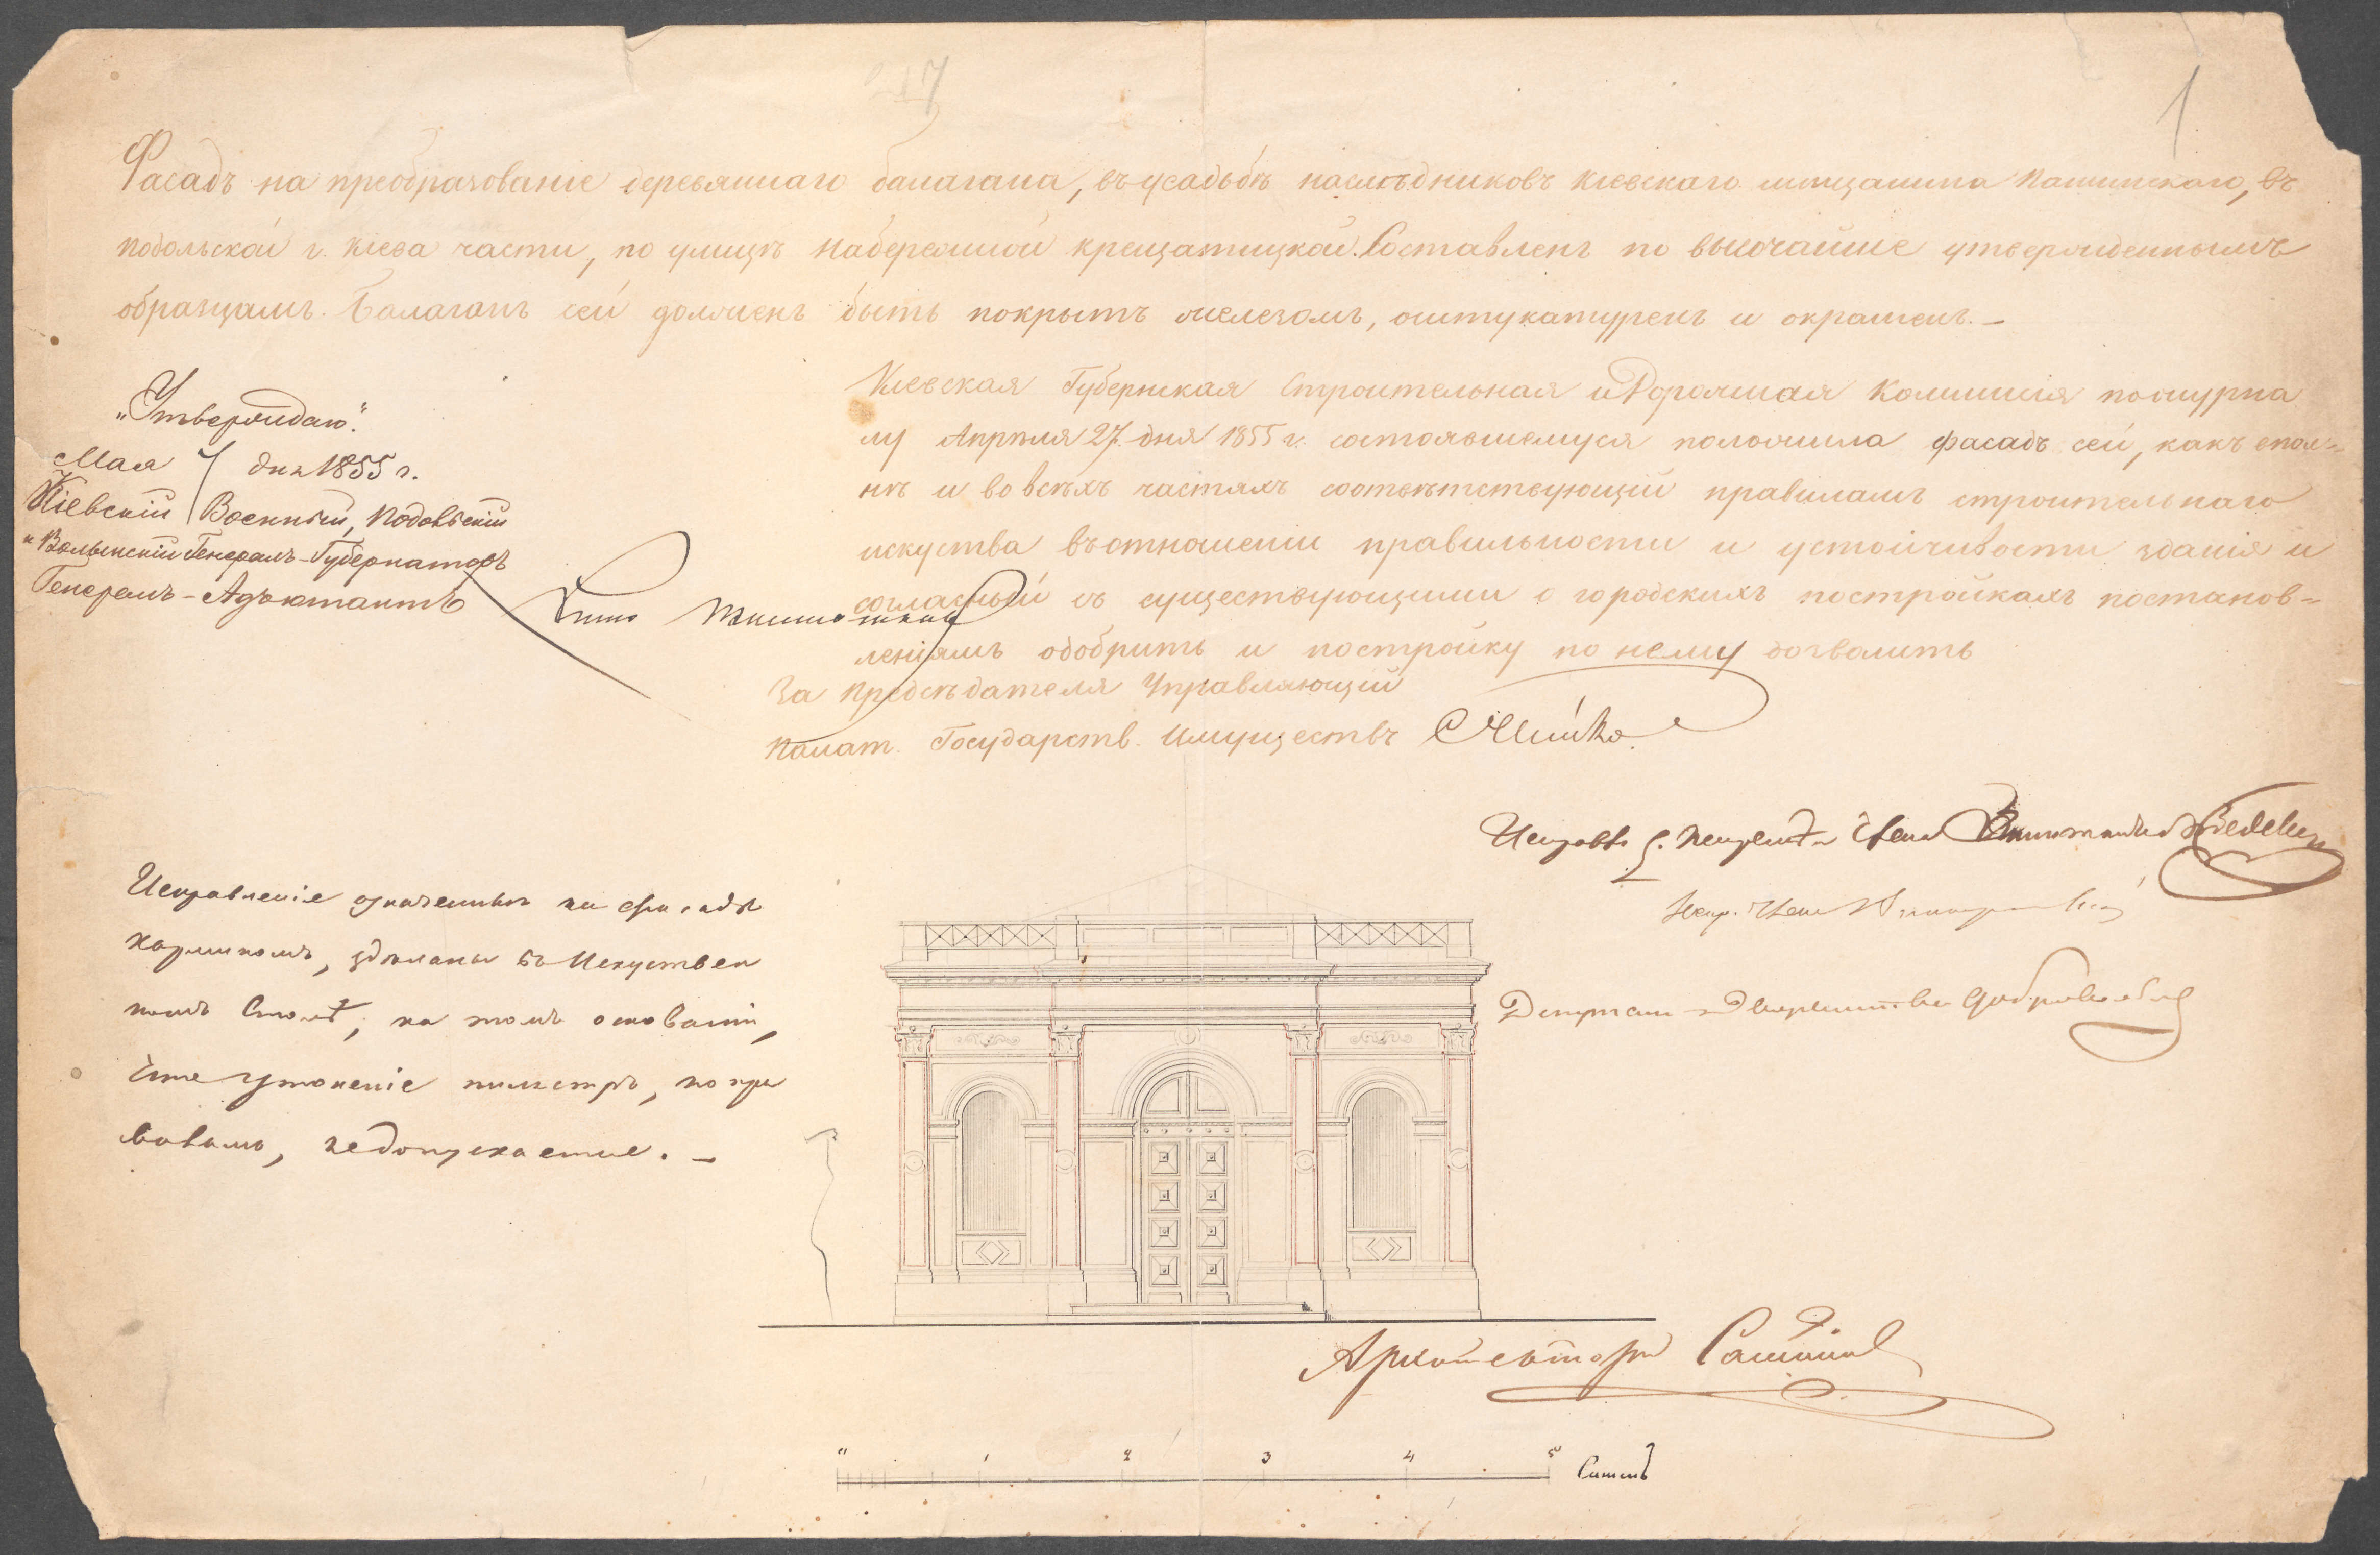 217
1
Фасадъ на преобразованіе деревяннаго балагана, въ усадьбѣ наслѣдниковъ кіевскаго мѣщанина Пашинскаго, въ
подольской г. Кіева части, по улицѣ набережной крещатицкой. Составленъ по высочайше утвержденнымъ
образцамъ. Балаганъ сей долженъ быть покрытъ желѣзомъ, оштукатуренъ и окрашенъ. –
Кіевская Губернская Строительная и Дорожная Коммисія по журна
лу Апрѣля 27 дня 1855 г. состоявшемуся положила фасадъ сей, какъ впол=
нѣ и во всѣхъ частяхъ соотвѣтствующій правиламъ строительнаго
искуства въ отношеніи правильности и устойчивости зданія и
согласный съ существующими о городскихъ постройкахъ постанов=
леніямъ одобрить и постройку по нему дозволить
За предсѣдателя Управляющій
Палат. Государств. Имуществъ
„Утверждаю".
Мая 7 дня 1855 г.
Кіевскій Военный, Подольскій
и Волынскій Генералъ-Губернаторъ
Генералъ-Адъютантъ
Исправленіе означенныя на фасадѣ
карминомъ, здѣланы въ Искуствен
номъ Столѣ, на томъ основаніи,
что утоненіе пилястръ, по пра
виламъ, недопускается. –
Депутатъ Дворянства
Архитекторъ
" 1 2 3 4 5 Сажень